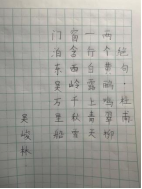 绝句·杜甫
两个黄鹂鸣翠柳
一行白鹭上青天
窗含西岭千秋雪
门泊东吴万里船
吴峻林